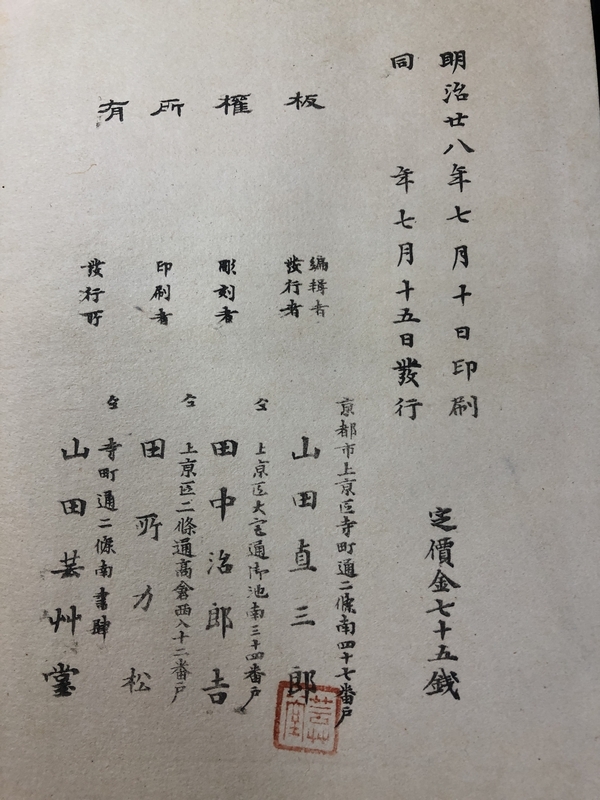 明治廿八年七月十日印刷
同　年七月十五日發行
定價金七十五銭
板權所有
編輯者
發行者
京都市上京區寺町通二條南四十七番戸
山田直三郎
彫刻者
仝 上京區大宮通御池南三十四番戸
田中治郎吉
印刷者
仝 上京區二條通高倉西入十二番戸
田所力松
發行所
仝 寺町通二條南書肆
山田芸艸堂
芸艸堂